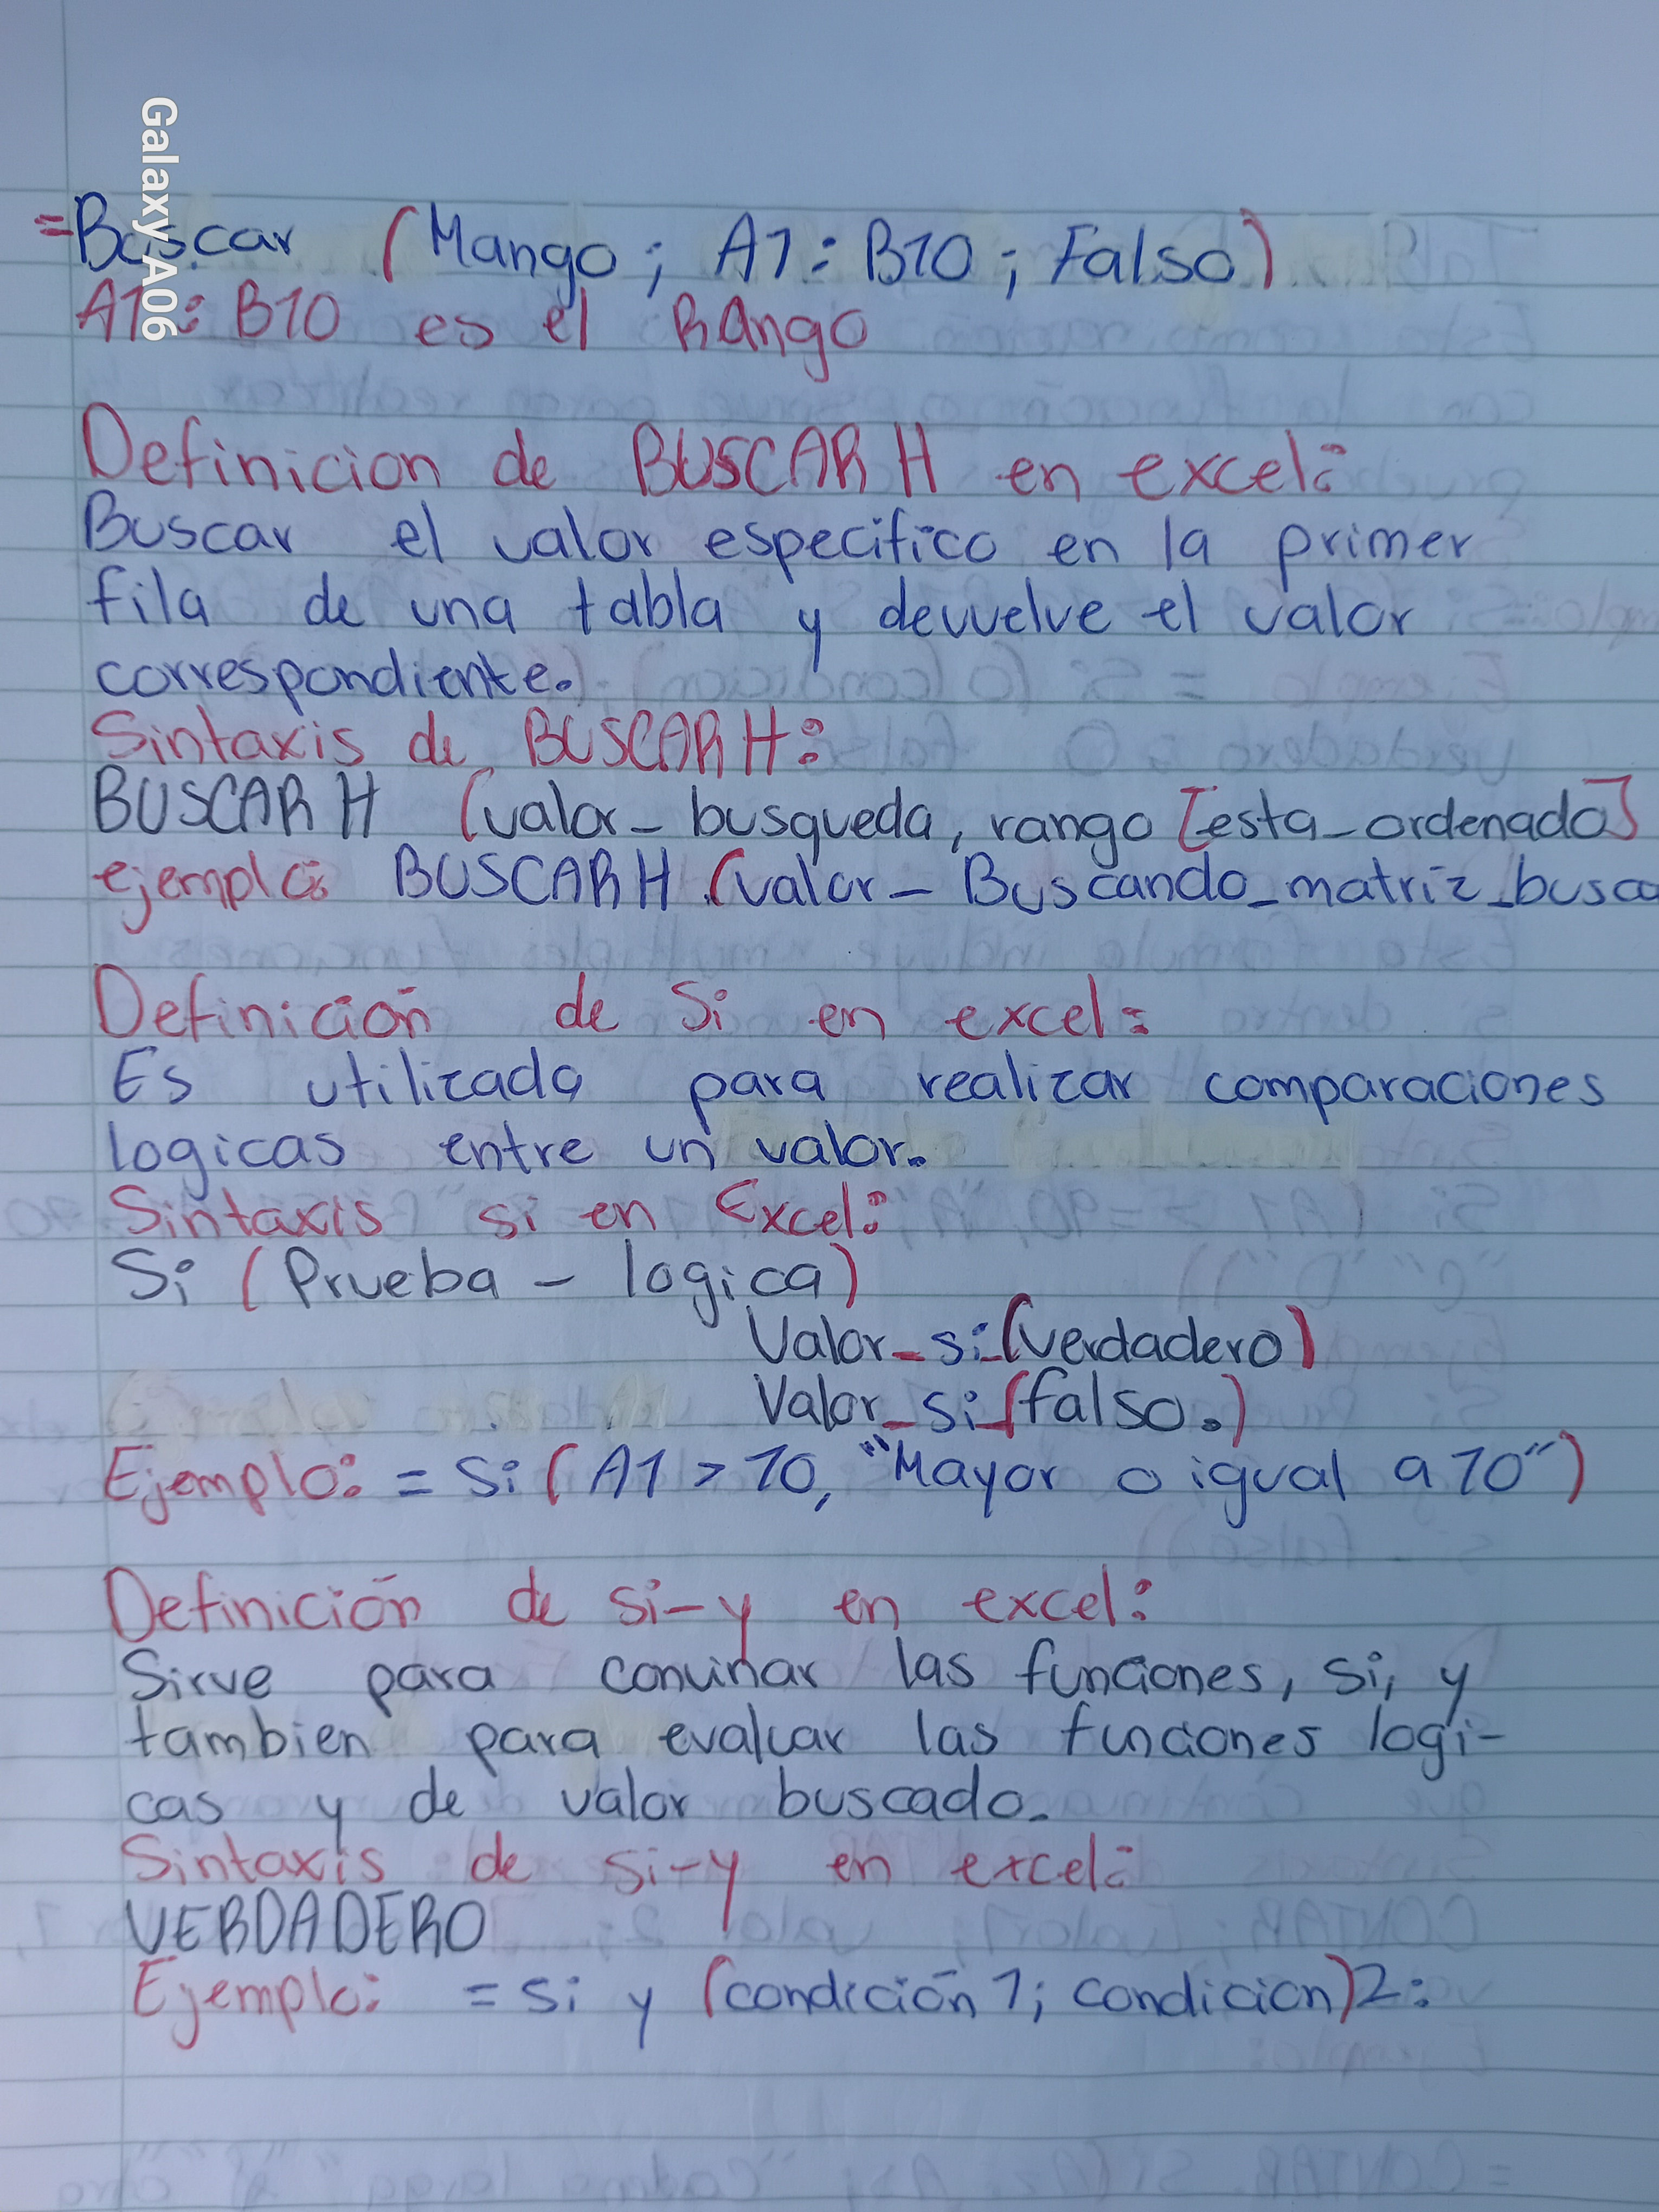 =Buscar (Mango; A1:B10; Falso)
A1:B10 es el RAngo
Definicion de BUSCAR H en excel:
Buscar el valor especifico en la primer
fila de una tabla y devuelve el valor
correspondiente.
Sintaxis de BUSCAR H:
BUSCAR H (valor_busqueda, rango [esta_ordenado]
ejemplo: BUSCAR H (valor_Buscando_matriz_busca
Definición de Si en excel:
Es utilizada para realizar comparaciones
logicas entre un valor.
Sintaxis si en Excel:
Si (Prueba - logica)
Valor_si_(verdadero)
Valor_si_(falso.)
Ejemplo: = Si (A1 > 10, "Mayor o igual a 10")
Definición de si-y en excel:
Sirve para convinar las funciones, si, y
tambien para evaluar las funciones logi-
cas y de valor buscado.
Sintaxis de si-y en excel:
VERDADERO
Ejemplo: = si y (condición 1; condicion) 2:
Galaxy A06